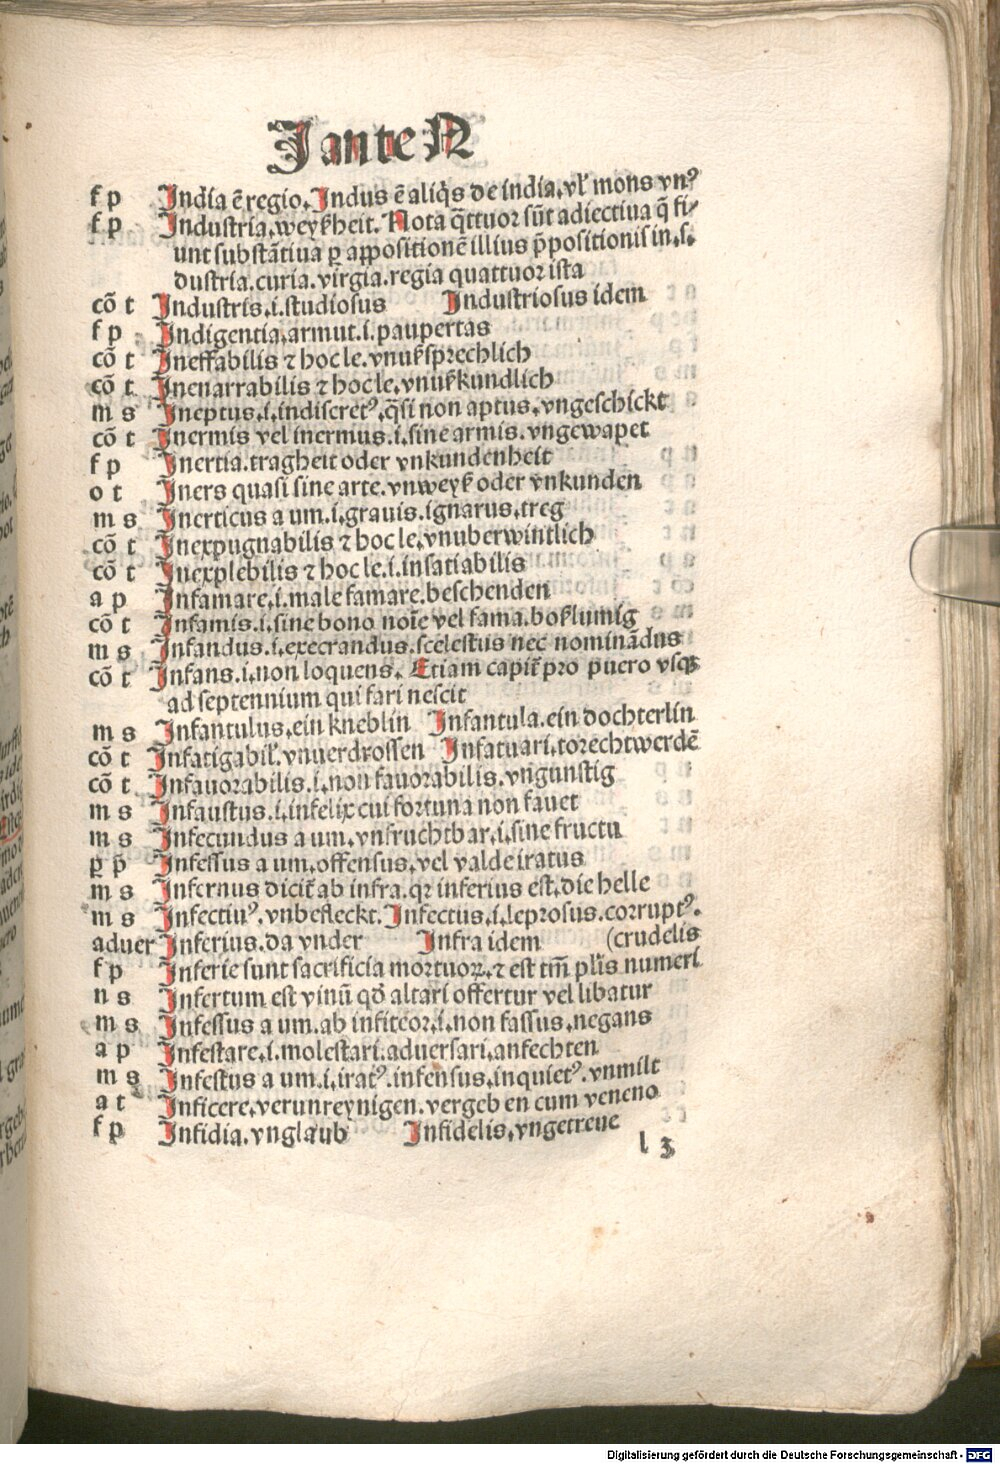 I ante N
f p India ē regio. Indus ē aliq̄s de india. vl' mons vnꝰ
f p Industria. weyßheit. Nota q̄ttuor sūt adiectiua q̄ fi⸗
unt substātiua ꝑ appositionē illius p̄positionis in. s.
dustria. curia. virgia. regia quattuor ista
cō t Industris .i. studiosus Industriosus idem
f p Indigentia. armut .i. paupertas
cō t Ineffabilis ⁊ hoc le. vnußsprechlich
cō t Inenarrabilis ⁊ hoc le. vnußkundlich
m s Ineptus .i. indiscretꝰ. q̄si non aptus. vngeschickt
cō t Inermis vel inermus .i. sine armis. vngewapet
f p Inertia. tragheit oder vnkundenheit
o t Iners quasi sine arte. vnweyß oder vnkunden
m s Inerticus a um .i. grauis. ignarus. treg
cō t Inexpugnabilis ⁊ hoc le. vnuberwintlich
cō t Inexplebilis ⁊ hoc le .i. insatiabilis
a p Infamare .i. male famare. beschenden
cō t Infamis .i. sine bono noīe vel fama. boßlumig
m s Infandus .i. execrandus. scelestus nec nominādus
cō t Infans .i. non loquens. Etiam capit̄ pro puero vsqꝫ
ad septennium qui fari nescit
m s Infantulus. ein kneblin Infantula. ein dochterlin
cō t Infatigabil'. vnuerdrossen Infatuari. torecht werdē
cō t Infauorabilis .i. non fauorabilis. vngunstig
m s Infaustus .i. infelix cui fortuna non fauet
m s Infecundus a um. vnfruchtbar .i. sine fructu
ꝑ p̄ Infessus a um. offensus. vel valde iratus
m s Infernus dicit̄ ab infra. qꝛ inferius est. die helle
m s Infectiuꝰ. vnbefleckt. Infectus .i. leprosus. corruptꝰ.
aduer Inferius. da vnder Infra idem (crudelis
f p Inferie sunt sacrificia mortuoꝝ. ⁊ est tm̄ pl'is numeri
n s Infertum est vinū qđ altari offertur vel libatur
m s Infessus a um. ab infiteor .i. non fassus. negans
a p Infestare .i. molestari. aduersari. anfechten
m s Infestus a um .i. iratꝰ. infensus. inquietꝰ. vnmilt
a t Inficere. verunreynigen. vergeben cum veneno
f p Infidia. vnglaub Infidelis. vngetreue
l 3
Digitalisierung gefördert durch die Deutsche Forschungsgemeinschaft - DFG